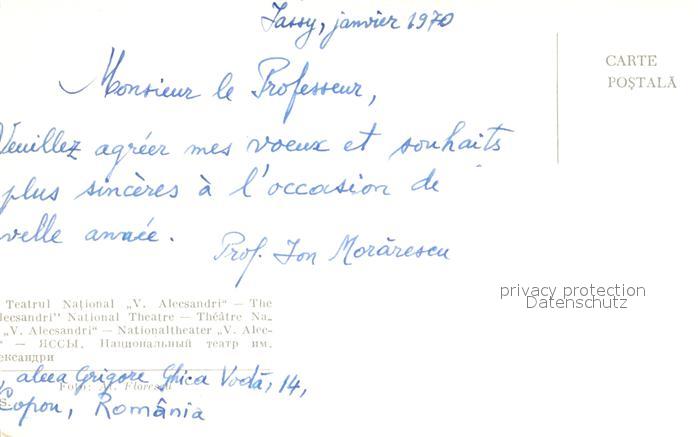 Jassy, janvier 1970
CARTE
POȘTALĂ
Monsieur le Professeur,
Veuillez agréer mes voeux et souhaits
plus sincères à l'occasion de
velle année.
Prof. Ion Morărescu
privacy protection
Datenschutz
Teatrul Național „V. Alecsandri" — The
lecsandri" National Theatre — Théâtre Na-
„V. Alecsandri" — Nationaltheater „V. Alec-
" — ЯССЫ. Национальный театр им.
ександри
Foto: A. Florescu
, aleea Grigore Ghica Vodă, 14,
Copou, România